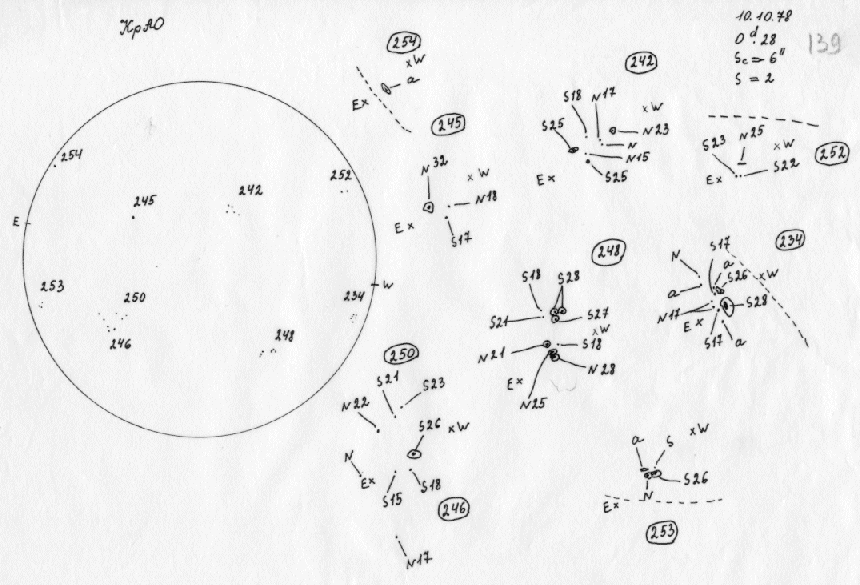 КрАО
10.10.78
0ᵈ.28
Sc = 6"
S = 2
139
254
245
242
252
E
W
253
250
246
234
248
254
xW
a
Ex
245
N32
xW
N18
Ex
S17
242
S18
N17
xW
S25
N23
N
N15
S25
Ex
252
S23
N25
xW
S22
Ex
248
S18
S28
S21
S27
xW
N21
S18
N28
Ex
N25
234
N
S17
a
S26
xW
a
N17
S28
Ex
S17
a
250
S21
S23
N22
S26
xW
N
Ex
S15
S18
246
N17
a
S
xW
S26
N
Ex
253